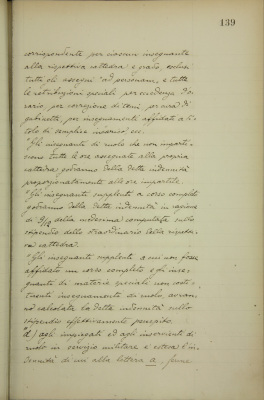 139
corrispondente per ciascun insegnante
alla rispettiva cattedra e grado, esclusi
tutti gli assegni "ad personam", e tutte
le retribuzioni speciali per eccedenza d'o-
rario, per correzione di temi, per cura di
gabinetto, per insegnamenti affidati a ti-
tolo di semplice incarico ecc.
"Gli insegnanti di ruolo che non imparti-
scono tutte le ore assegnate alla propria
cattedra godranno della detta indennità
proporzionatamente alle ore impartite.
"Gli insegnanti supplenti a corso completo
godranno della detta indennità in ragione
di 9/12 della medesima computata sullo
stipendio dello straordinario della rispetti-
va cattedra.
"Gli insegnanti supplenti a cui non fosse
affidato un corso completo e gli inse-
gnanti di materie speciali non costi-
tuenti insegnamento di ruolo, avran-
no calcolata la detta indennità sullo
stipendio effettivamente percepito.
"d) agli impiegati ed agli inservienti di
ruolo in servizio militare è estesa l'in-
dennità di cui alla lettera a, ferme